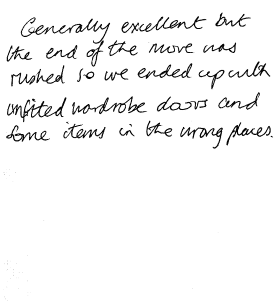 Generally excellent but
the end of the move was
rushed so we ended up with
unfitted wardrobe doors and
some items in the wrong places.